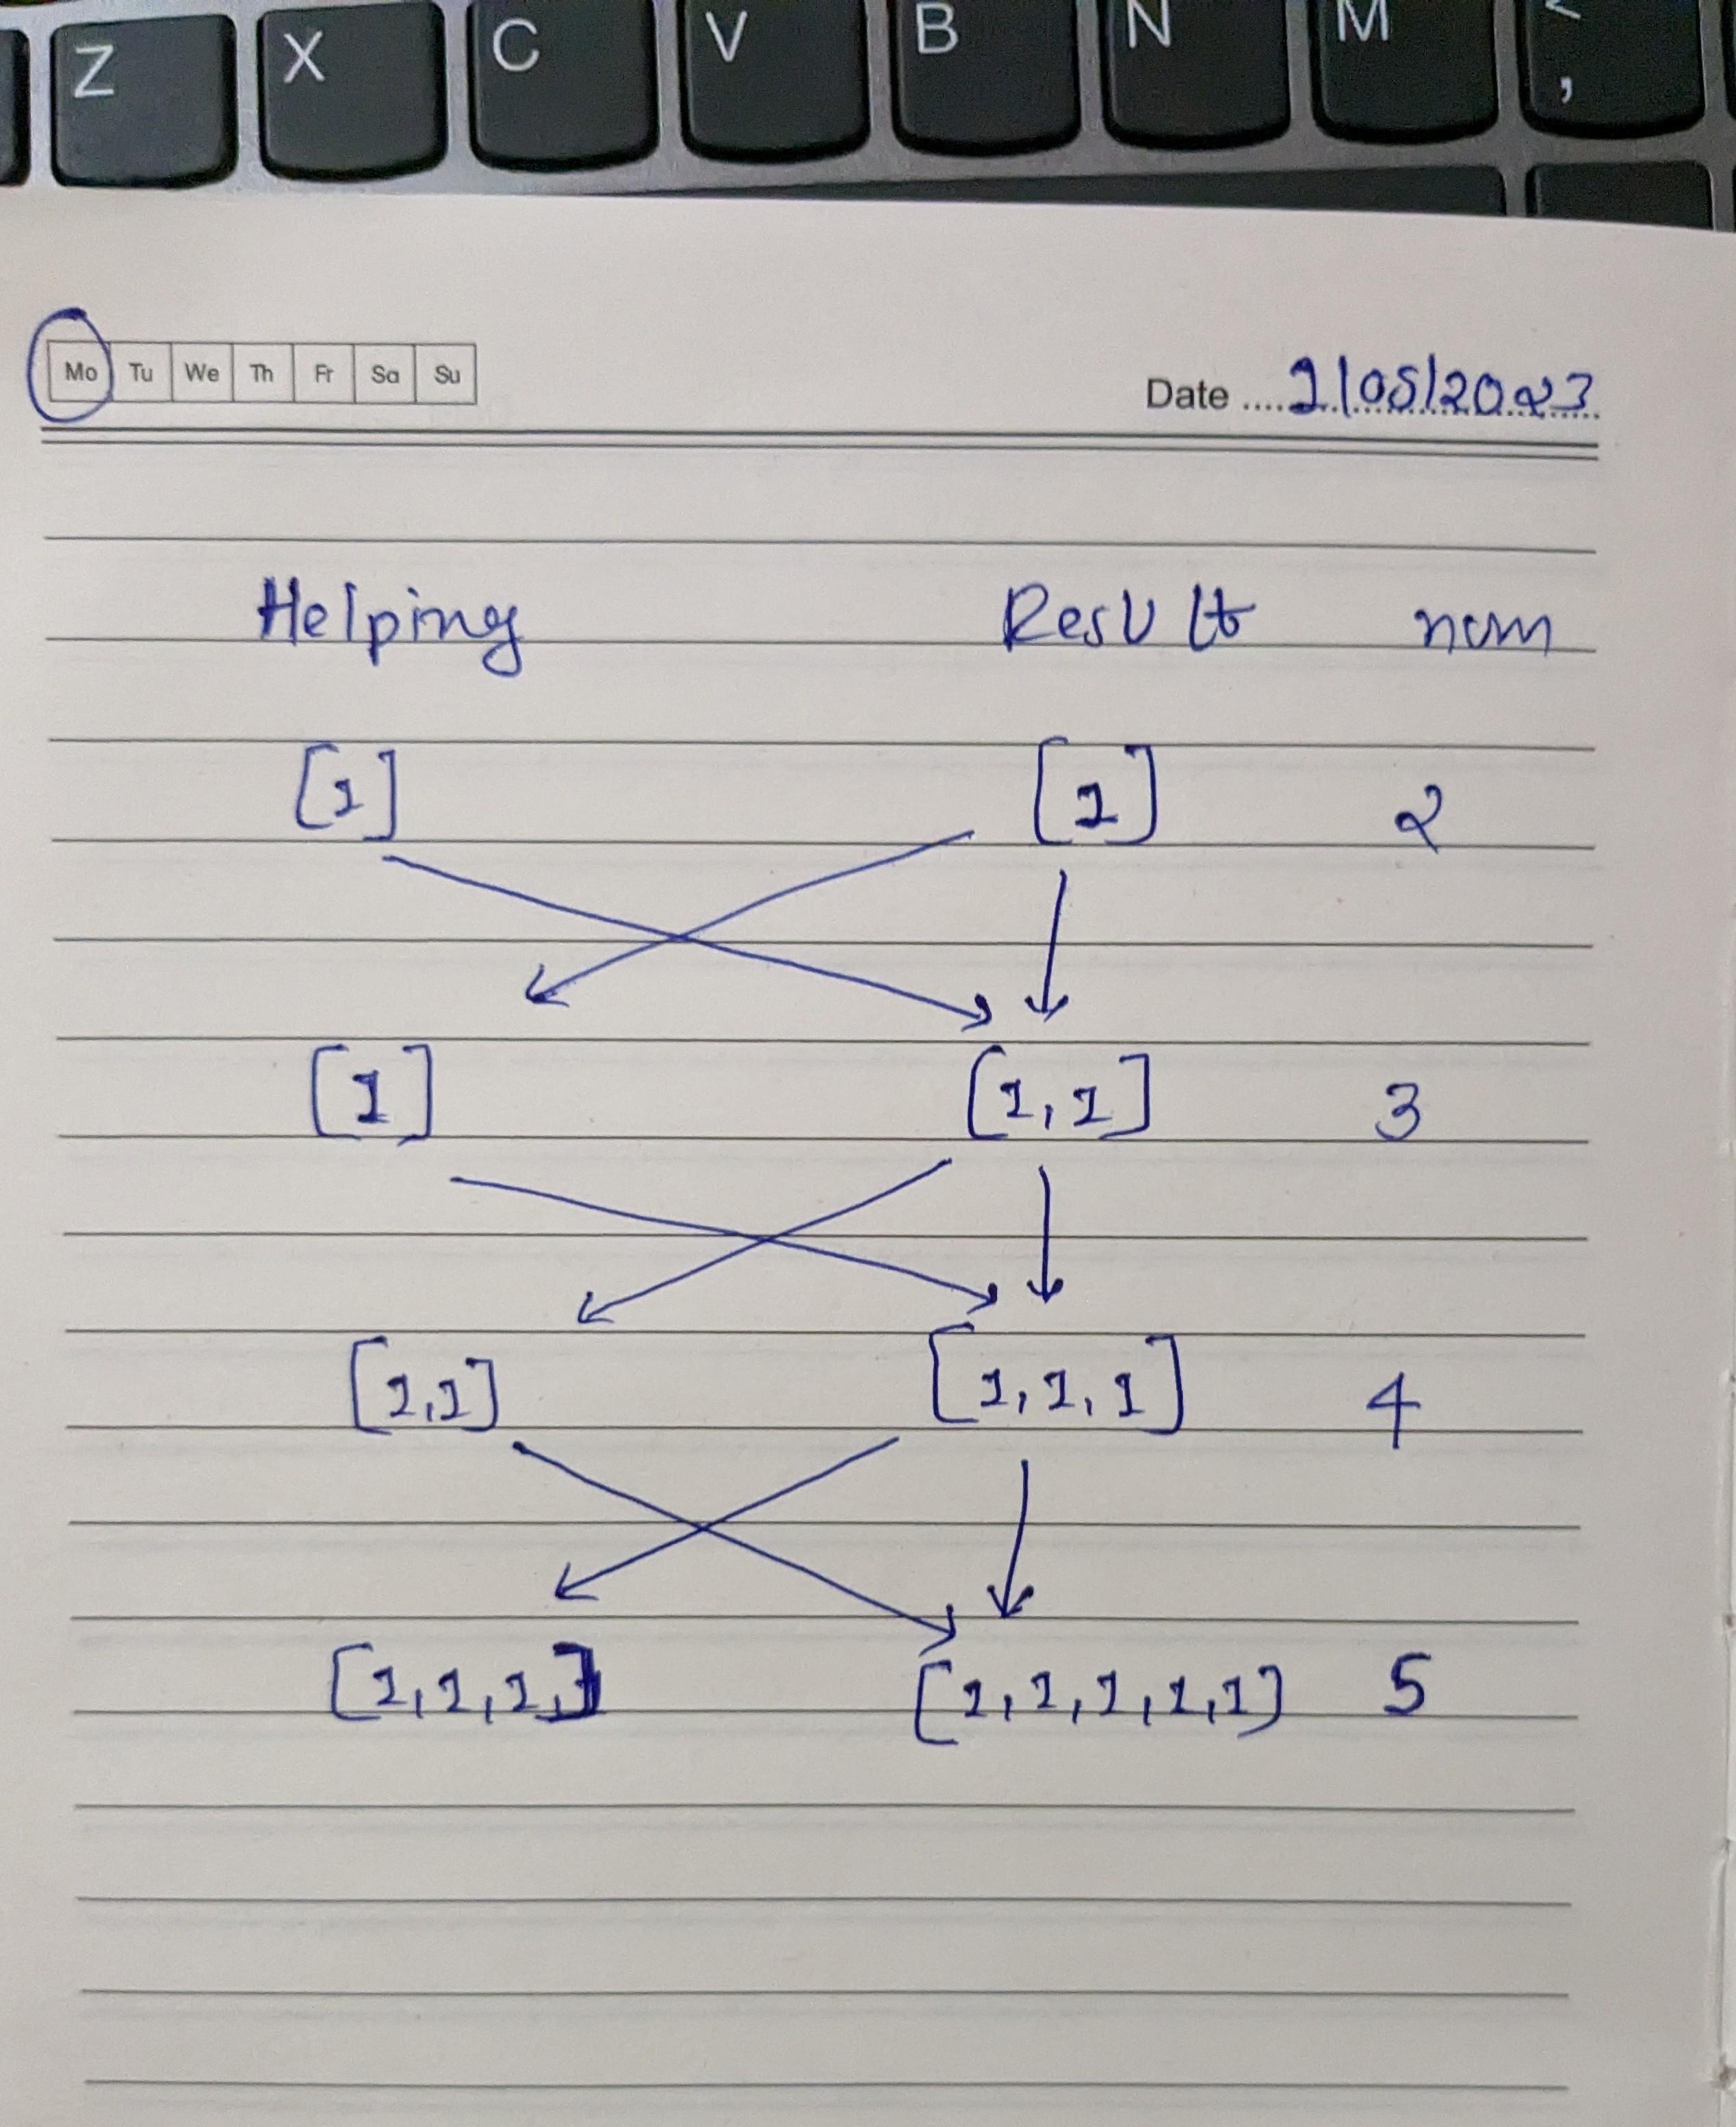 Z X C V B N M < ,
Mo Tu We Th Fr Sa Su
Date .... 1/05/2023
Helping Result num
[1] [1] 2
[1] [1,1] 3
[1,1] [1,1,1] 4
[1,1,1] [1,1,1,1,1] 5